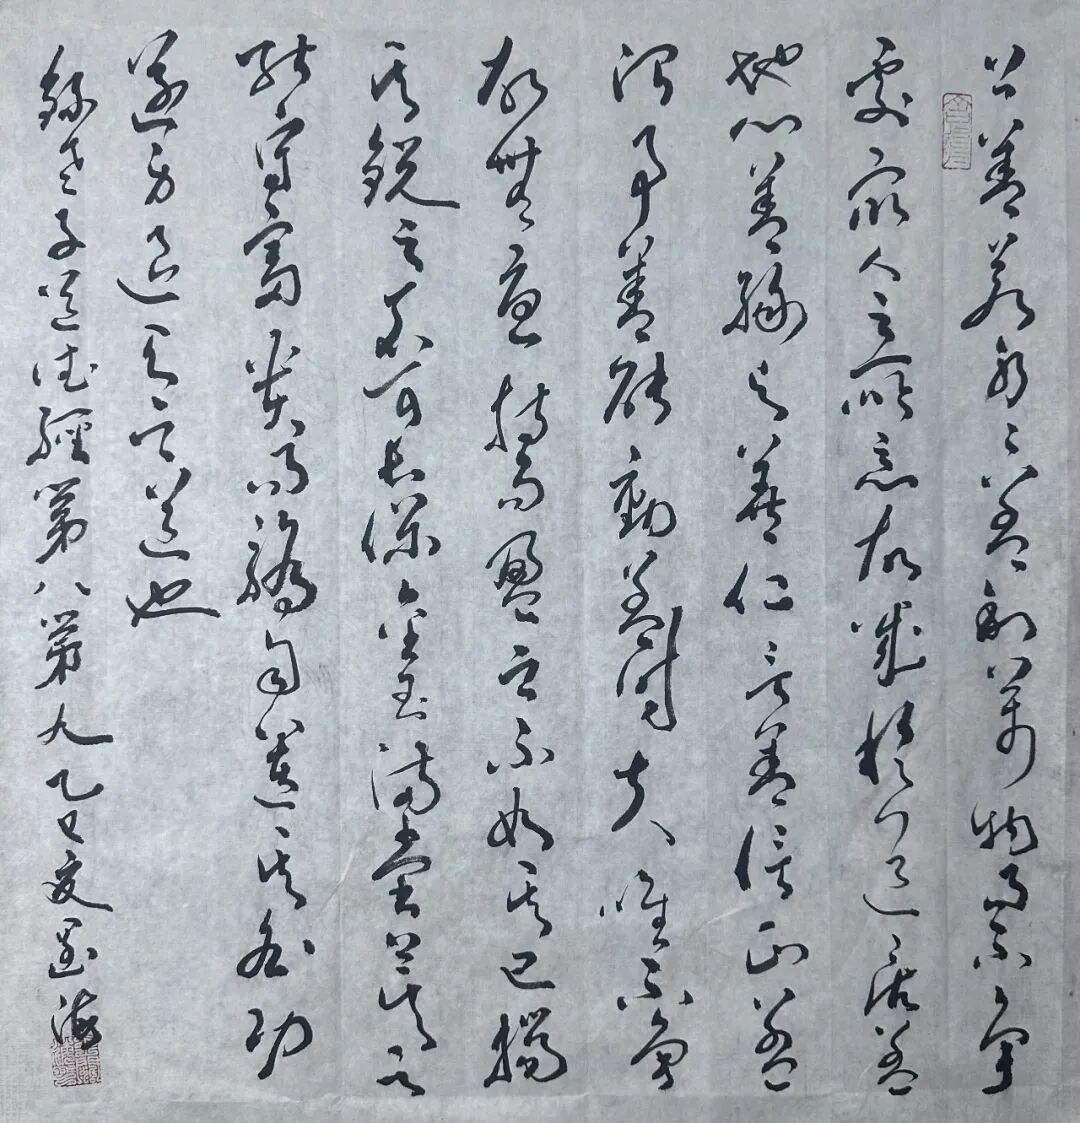 上善若水〻善利万物而不争
處眾人之所惡故幾於道居善
地心善渊与善仁言善信正善
治事善能動善时夫唯不争
故無尤持而盈之不如其已揣
其銳之不可长保金玉满堂莫之
能守富贵而驕自遺其咎功
遂身退天之道也
錄老子道德經第八第九乙巳夏海